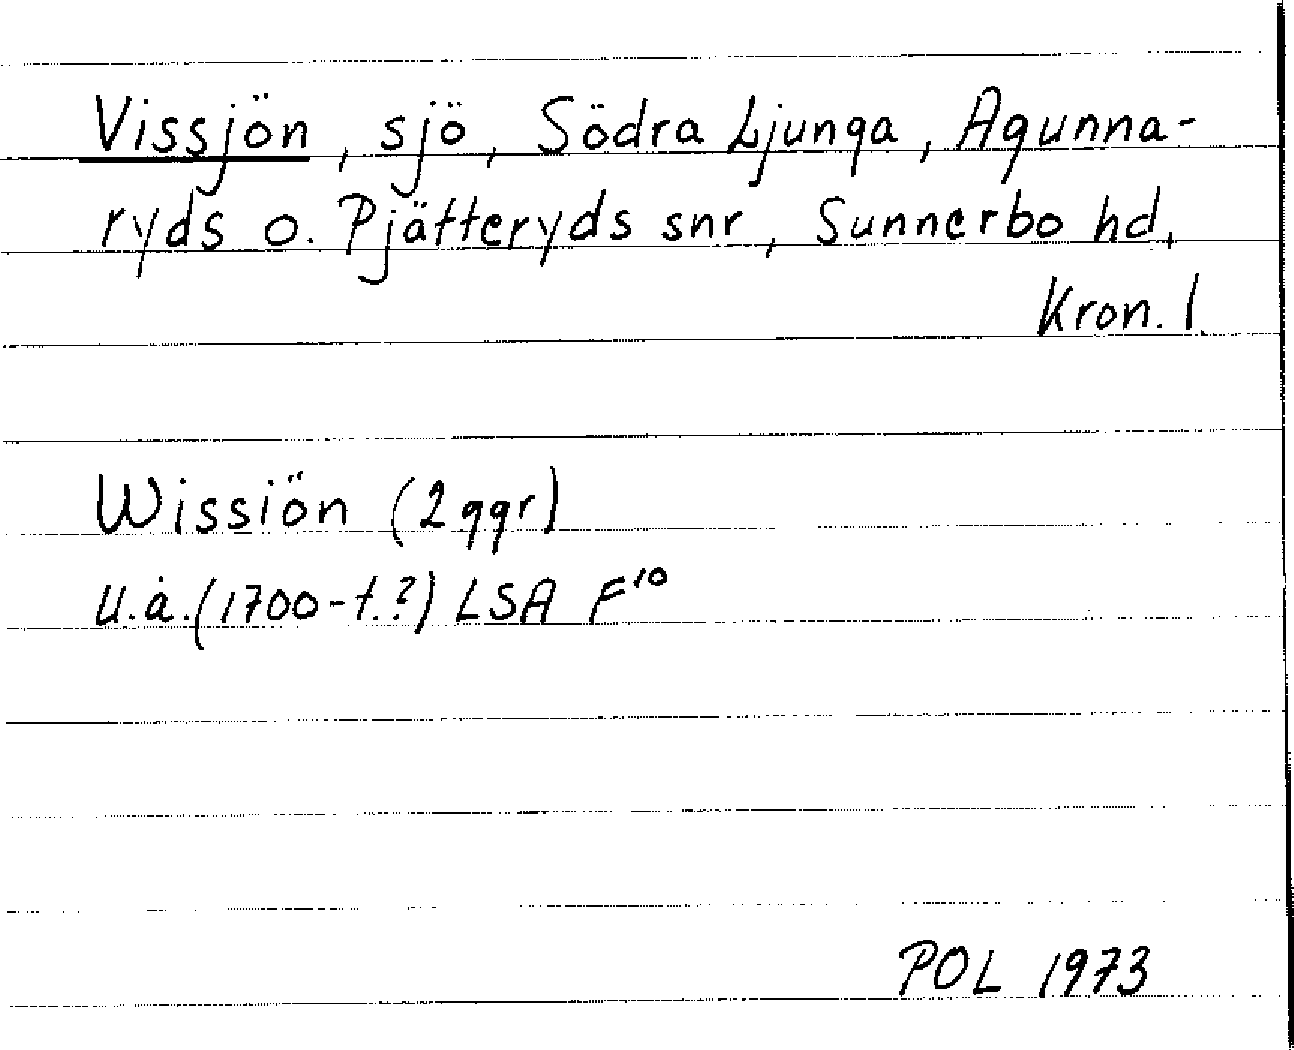 Vissjön, sjö, Södra Ljunga, Agunna-
ryds o. Pjätteryds snr, Sunnerbo hd,
Kron. l.
Wissiön (2 ggr)
u.å. (1700-t.?) LSA F10
POL 1973